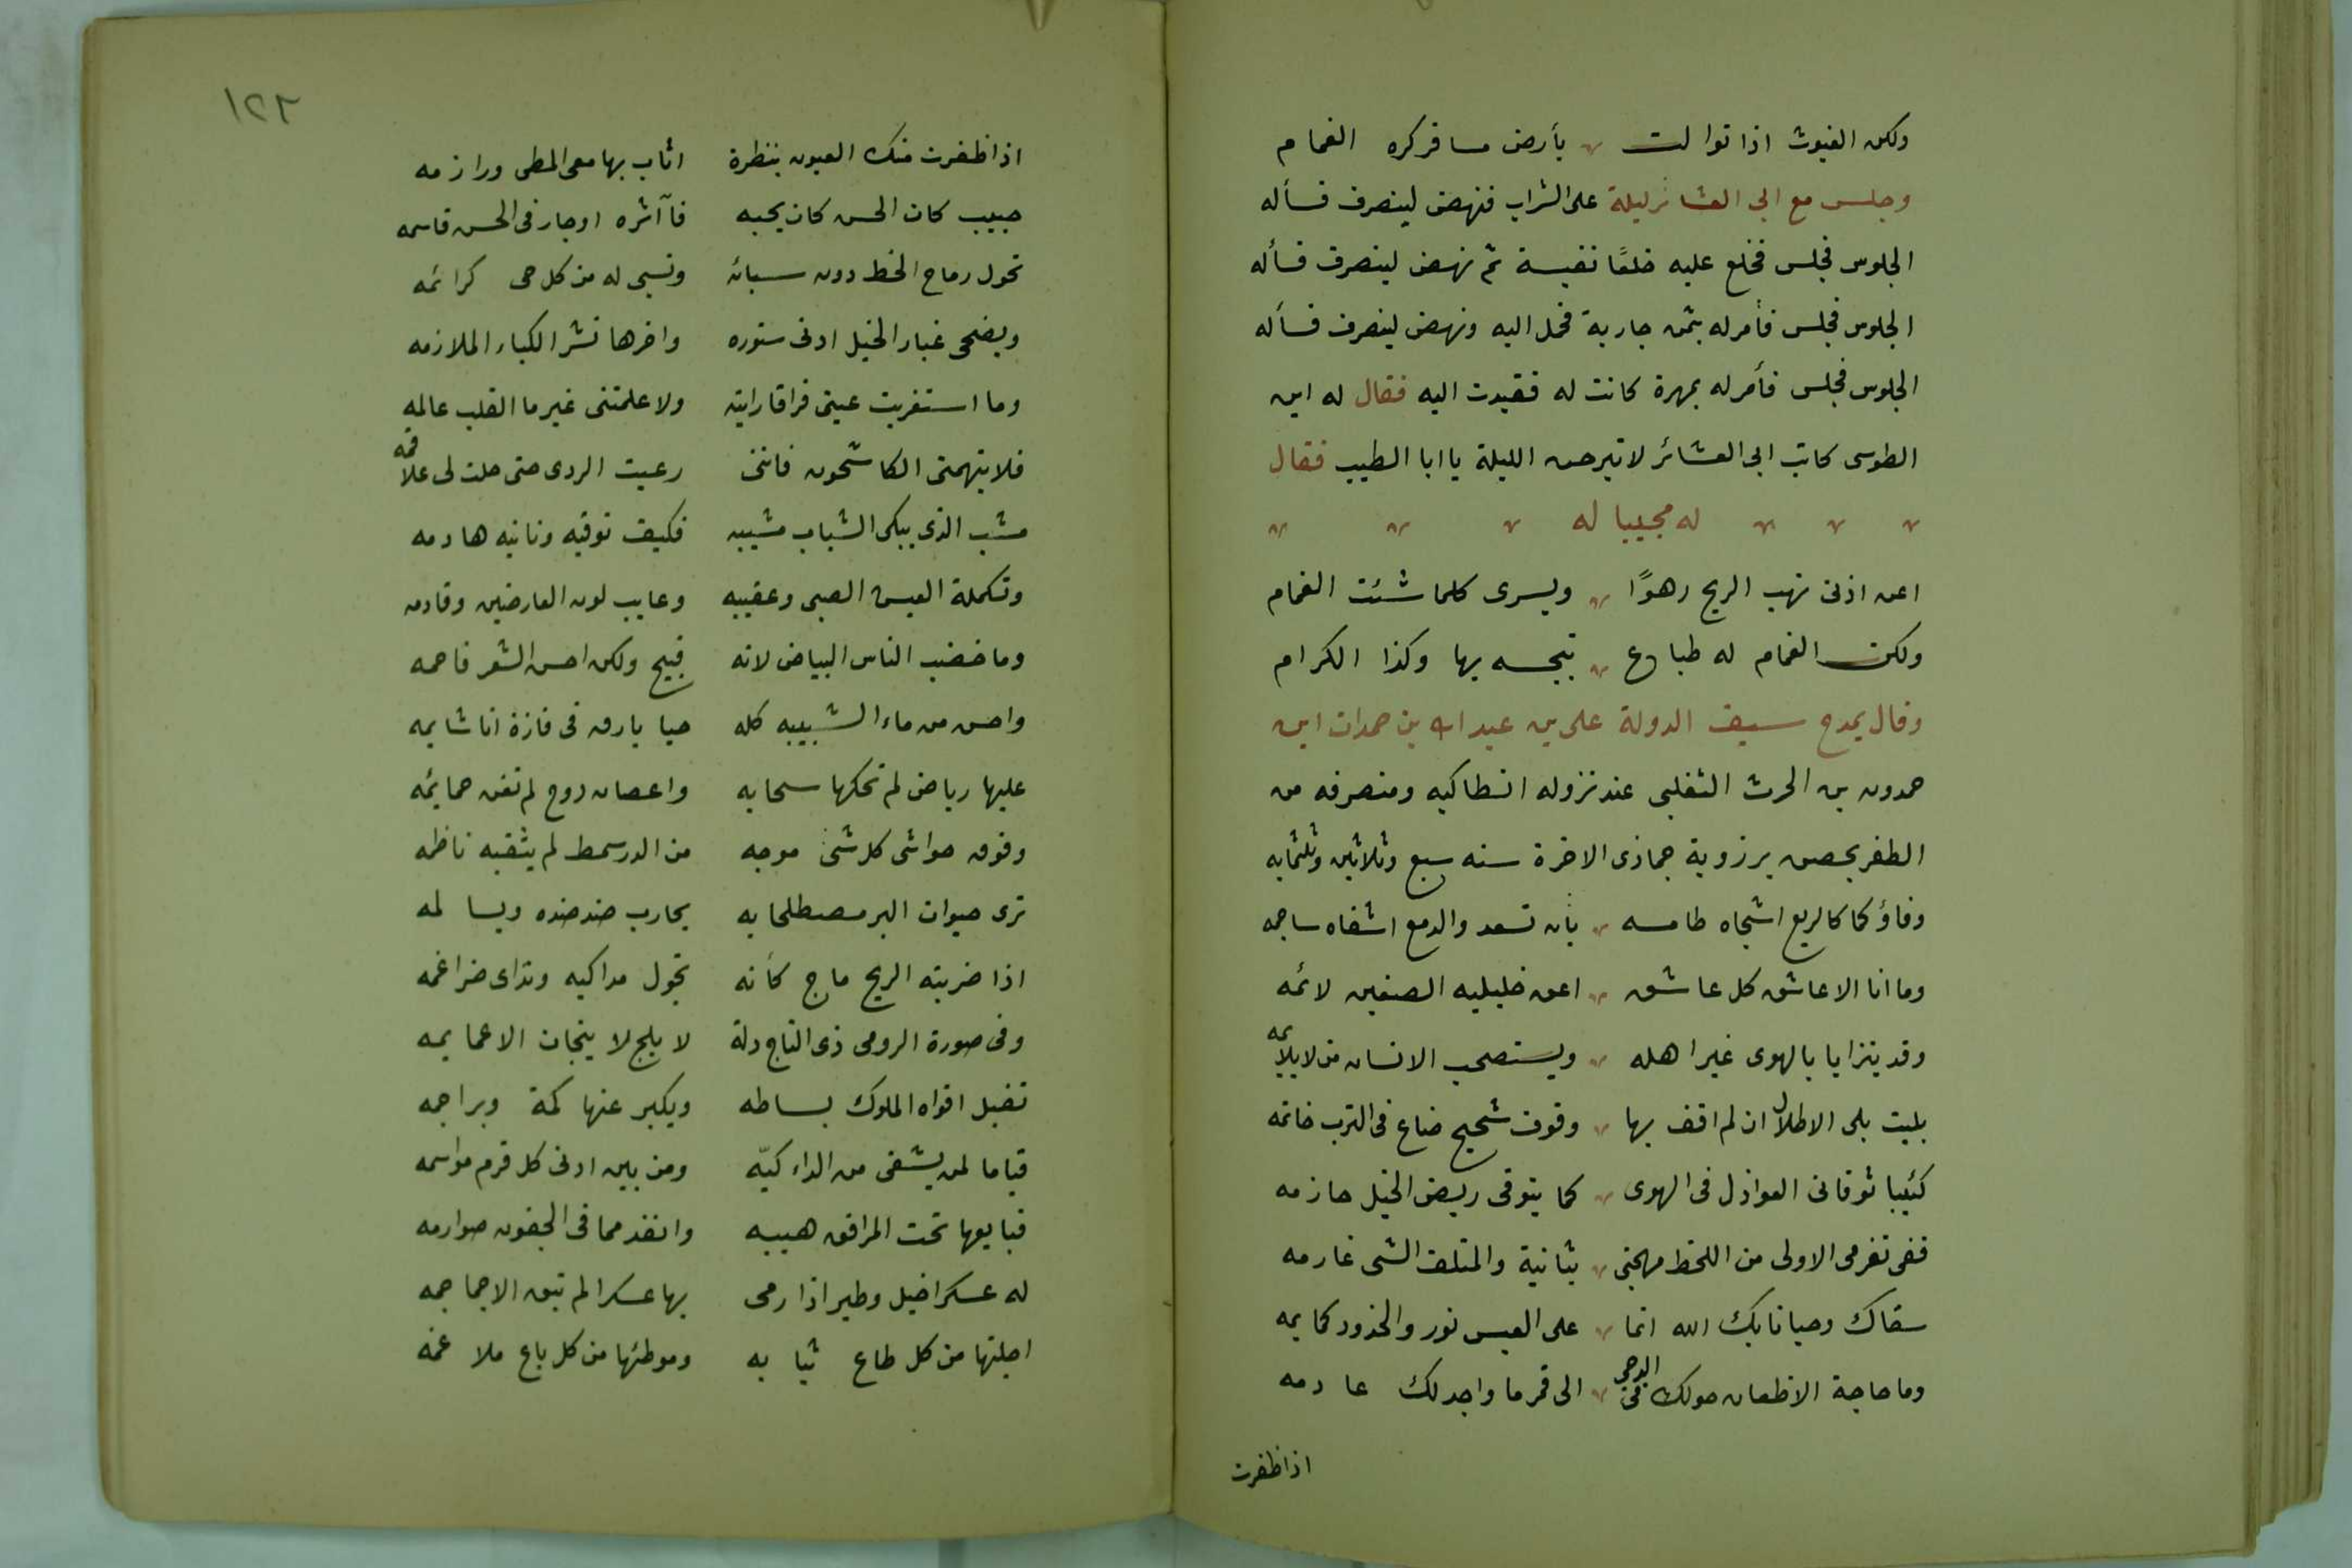 ولكن الغيوث اذا توالت بأرض مسافر كره الغمام
وجلس مع ابى العشائر ليلة على الشراب فنهض لينصرف فسأله
الجلوس فجلس فخلع عليه خلعًا نفيسة ثم نهض لينصرف فسأله
الجلوس فجلس فأمر له بثمن جارية فحمل اليه ونهض لينصرف فسأله
الجلوس فجلس فأمر له بمهرة كانت له فقيدت اليه فقال له ابن
الطوسى كاتب ابى العشائر لا تبرحن الليلة يا ابا الطيب فقال
له مجيبا له
اعن اذنى تهب الريح رهوًا ويسرى كلما شئت الغمام
ولكن الغمام له طباع تبجسه بها وكذا الكرام
وقال يمدح سيف الدولة على بن عبد الله بن حمدان ابن
حمدون بن الحرث التغلبى عند نزوله انطاكيه ومنصرفه من
الظفر بحصن برزوية جمادى الاخرة سنه سبع وثلاثين وثلثمايه
وفاؤكما كالربع اشجاه طاسمه بأن تسعد والدمع اشفاه ساجمه
وما انا الا عاشق كل عاشق اعق خليليه الصفين لائمه
وقد يتزايا بالهوى غير اهله ويستصحب الانسان من لا يلايمه
بليت بلى الاطلال ان لم اقف بها وقوف شحيح ضاع فى الترب خاتمه
كئيبا توقانى العواذل فى الهوى كما يتوقى ريض الخيل حازمه
قفى تغرمى الاولى من اللحظ مهجتى بثانية والمتلف الشى غارمه
سقاك وحيانا بك الله انما على العيس نور والخدود كمايمه
وما حاجة الاظعان حولك فى الدجى الى قمر ما واجد لك عادمه
اذا ظفرت
١٢٢
اذا ظفرت منك العيون بنظرة اثاب بها معى المطى ورازمه
حبيب كان الحسن كان يحبه فآثره او جار فى الحسن قاسمه
تحول رماح الخط دون سبائه وتسبى له من كل حى كرائمه
ويضحى غبار الخيل ادنى ستوره واخرها نشر الكباء الملازمه
وما استغربت عينى فراقا رايته ولا علمتنى غير ما القلب عالمه
فلا يتهمنى الكاشحون فاننى رعيت الردى حتى حلت لى علاقمه
مشب الذى يبكى الشباب مشيبه فكيف توقيه وبانيه هادمه
وتكملة العيش الصبى وعقيبه وعايب لون العارضين وقادمه
وما خضب الناس البياض لانه قبيح ولكن احسن الشعر فاحمه
واحسن من ماء الشبيبه كله حيا بارق فى فازة انا شايمه
عليها رياض لم تحكها سحابه واغصان دوح لم تغن حمايمه
وفوق حواشى كل شئ موجه من الدر سمط لم يثقبه ناظمه
ترى حيوان البر مصطلحا به يحارب ضد ضده ويسالمه
اذا ضربته الريح ماج كأنه تجول مذاكيه وتداى ضراغمه
وفى صورة الرومى ذى التاج ذلة لابلج لا تيجان الا عمايمه
تقبل افواه الملوك بساطه ويكبر عنها كمه وبراجمه
قياما لمن يشفى من الداء كيّه ومن بين اذنى كل قرم مواسمه
قبايعها تحت المرافق هيبه وانفذ مما فى الجفون صوارمه
له عسكرا خيل وطير اذا رمى بها عسكرا لم تبق الا جماجمه
اجلتها من كل طاغ ثيابه وموطئها من كل باغ ملاغمه